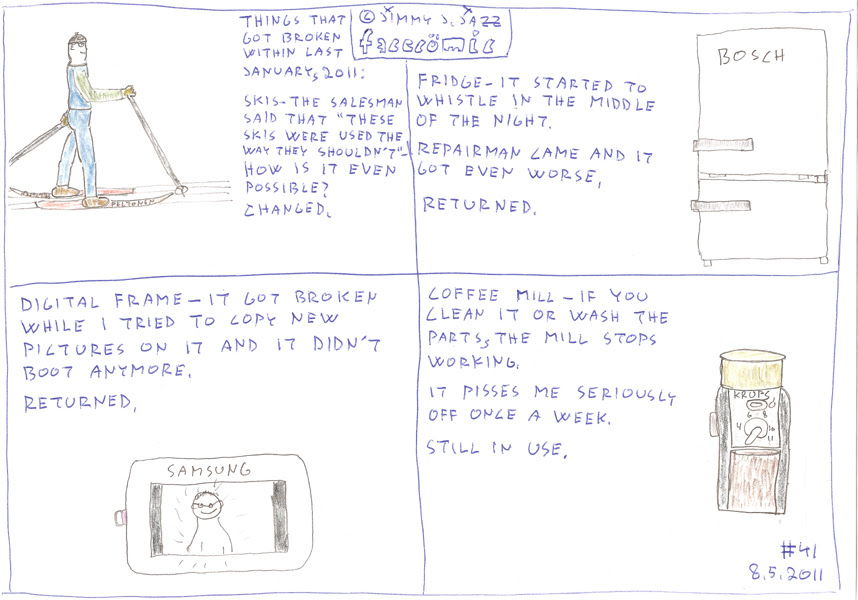 THINGS THAT
GOT BROKEN
WITHIN LAST
JANUARY, 2011:
SKIS-THE SALESMAN
SAID THAT "THESE
SKIS WERE USED THE
WAY THEY SHOULDN'T"-
HOW IS IT EVEN
POSSIBLE?
CHANGED.
PELTONEN
© JIMMY J. JAZZ
FRIDGE-IT STARTED TO
WHISTLE IN THE MIDDLE
OF THE NIGHT.
REPAIRMAN CAME AND IT
GOT EVEN WORSE.
RETURNED.
BOSCH
DIGITAL FRAME-IT GOT BROKEN
WHILE I TRIED TO COPY NEW
PICTURES ON IT AND IT DIDN'T
BOOT ANYMORE.
RETURNED.
SAMSUNG
COFFEE MILL-IF YOU
CLEAN IT OR WASH THE
PARTS, THE MILL STOPS
WORKING.
IT PISSES ME SERIOUSLY
OFF ONCE A WEEK.
STILL IN USE.
KRUPS
6 8
4 10
11
#41
8.5.2011